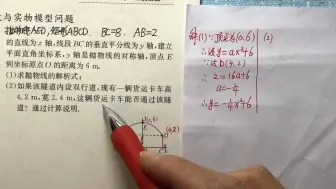 与实物模型问题
抛物线AED,矩形ABCD、BC=8、AB=2
的直线为x轴,线段BC的垂直平分线为y轴,建立
平面直角坐标系,y轴是抛物线的对称轴,顶点E
到坐标原点O的距离为6 m.
(1)求抛物线的解析式;
(2)如果该隧道内设双行道,现有一辆货运卡车高
4.2 m,宽2.4 m,这辆货运卡车能否通过该隧
道?通过计算说明.
(0,6)
E
(4,2)
解(1)∵顶点为(0,6)
∴设y=ax²+6
∵设D(4,2)
2=16a+6
a=-¼
∴y=-¼x²+6
(2)